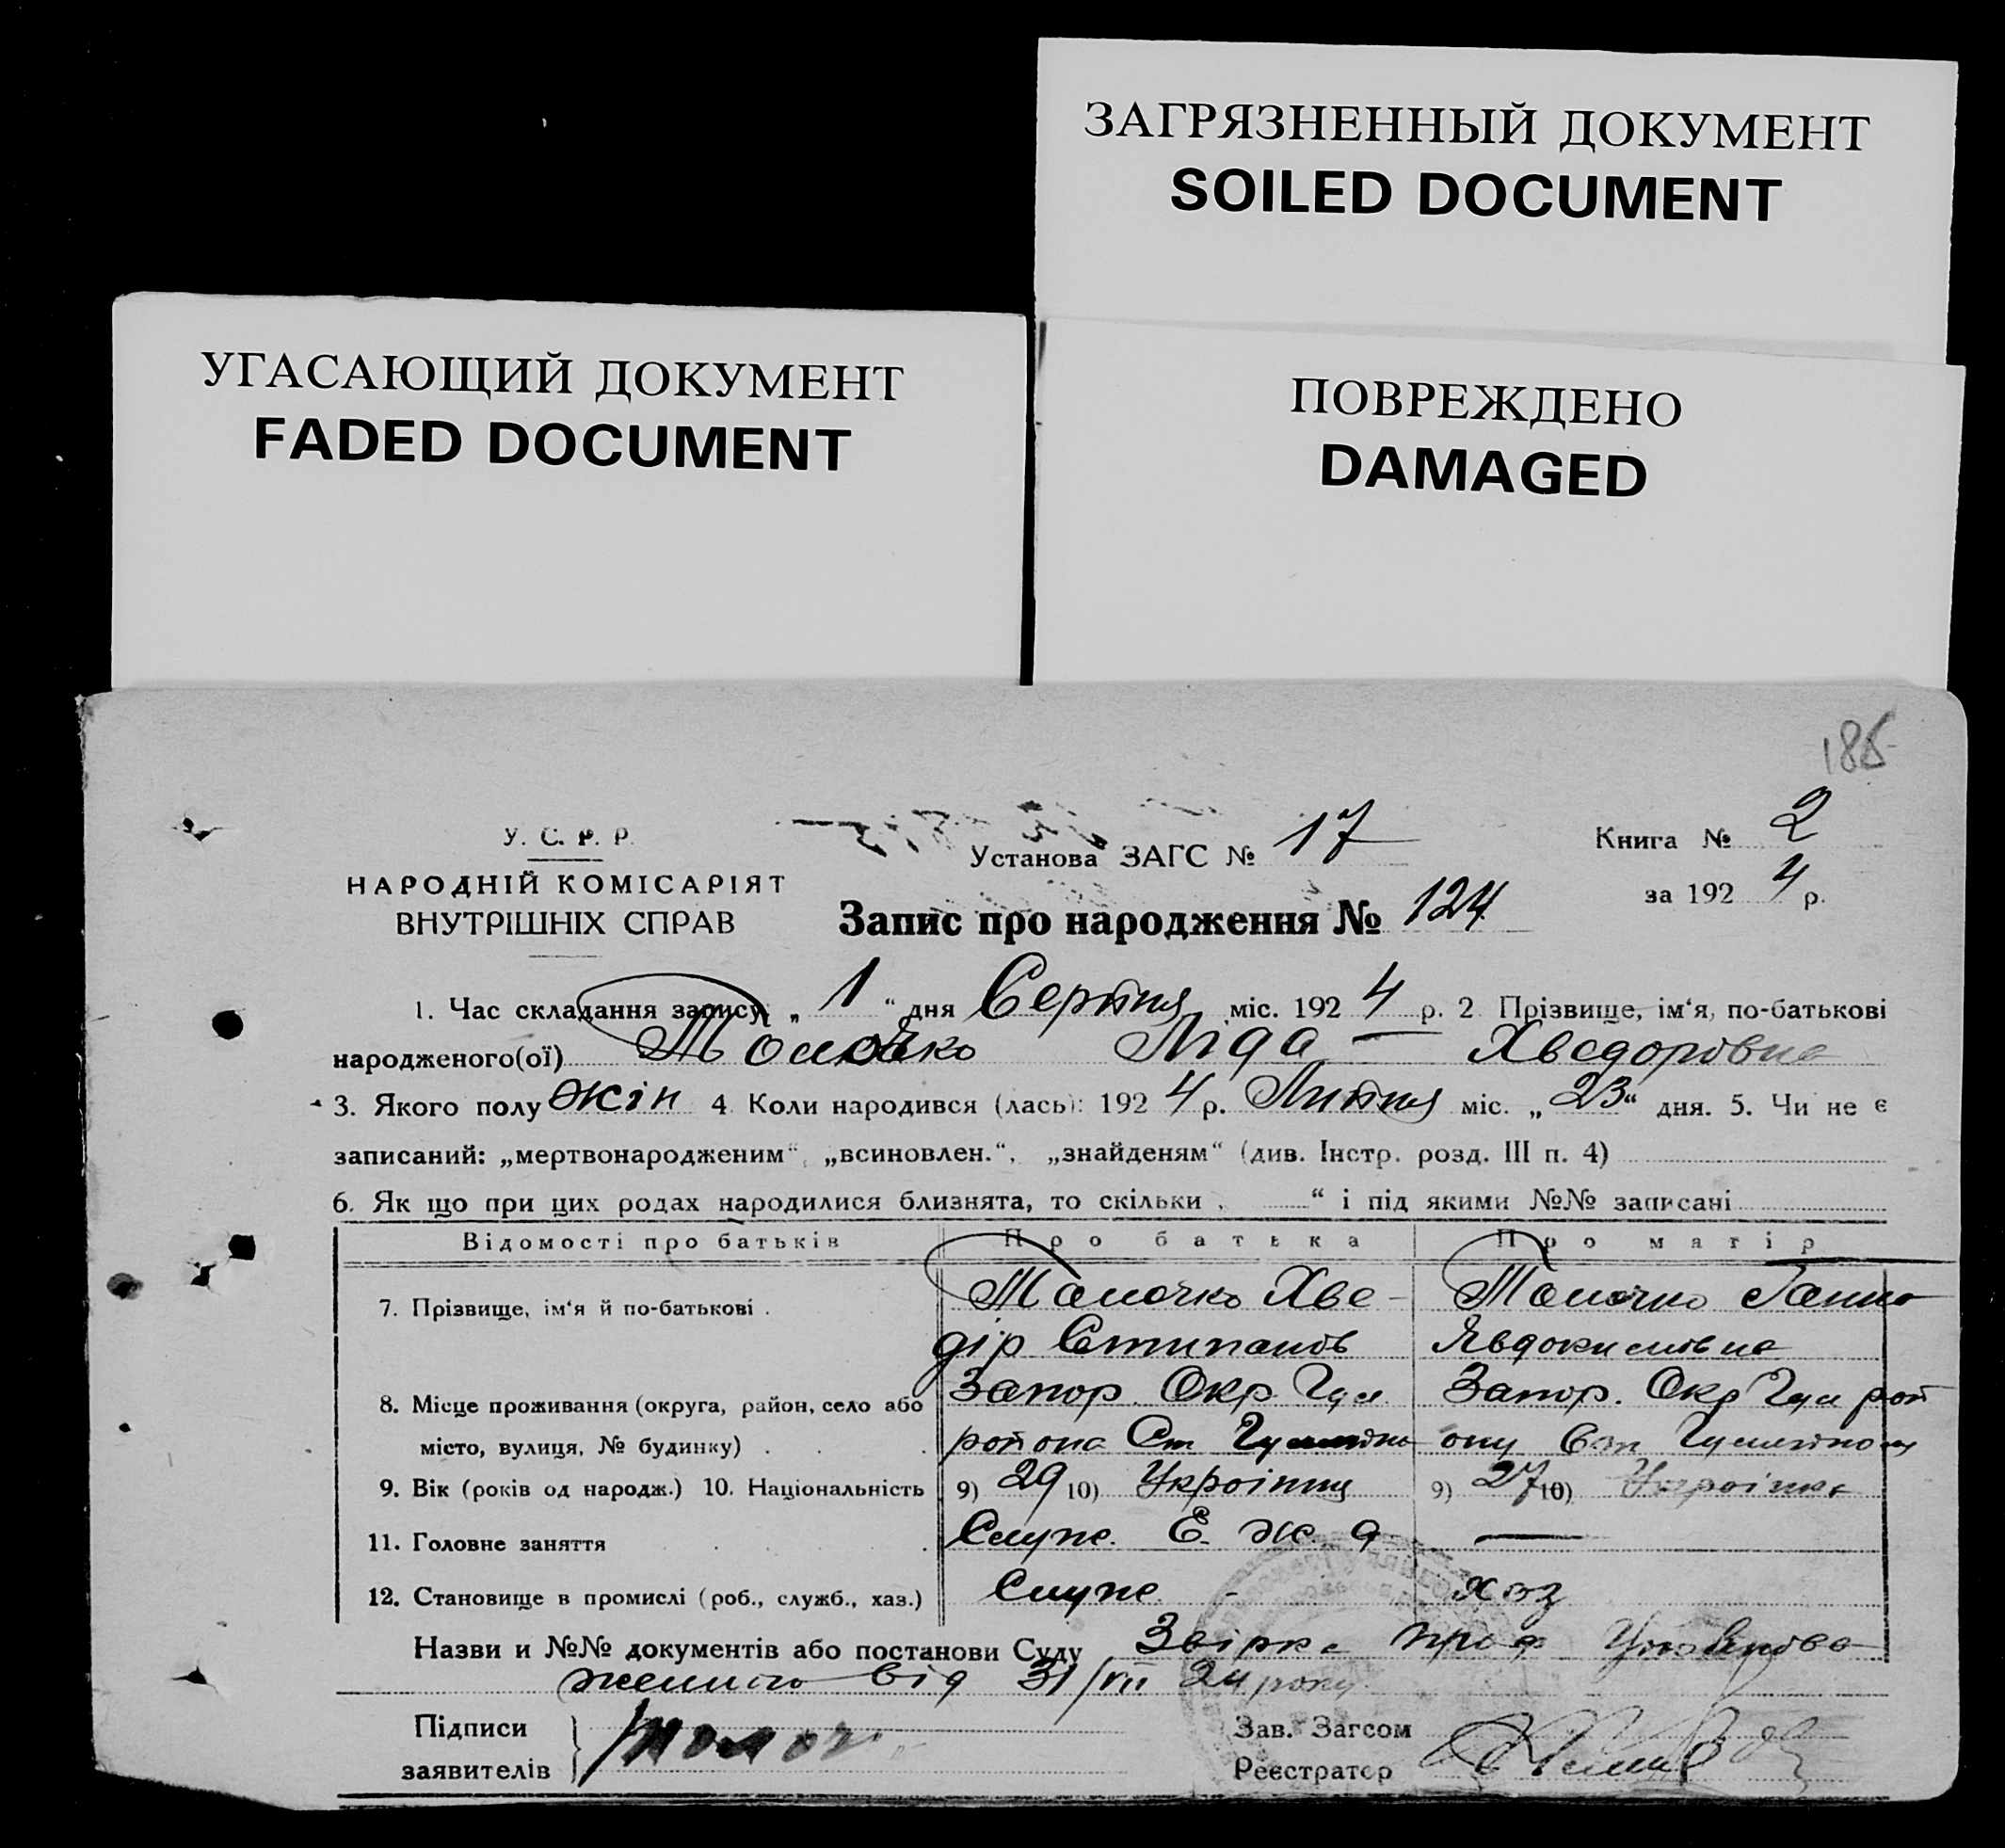 ЗАГРЯЗНЕННЫЙ ДОКУМЕНТ
SOILED DOCUMENT
УГАСАЮЩИЙ ДОКУМЕНТ
FADED DOCUMENT
ПОВРЕЖДЕНО
DAMAGED
185
У. С. Р. Р.
НАРОДНІЙ КОМІСАРІЯТ
ВНУТРІШНІХ СПРАВ
Установа ЗАГС № 17
Книга № 2
за 192 4 р.
Запис про народження № 124
1. Час складання запису: „ 1 “ дня Серпня міс. 192 4 р. 2 Прізвище, ім‘я, по-батькові
народженого(ої) Толочко Ліда — Хведоровна
3. Якого полу жін 4 Коли народився (лась): 192 4 р. Липня міс. „ 23 “ дня. 5. Чи не є
записаний: „мертвонародженим“, „всиновлен.“, „знайденям“ (див. Інстр. розд. III п. 4)
6. Як що при цих родах народилися близнята, то скільки „ “ і під якими №№ записані
Відомості про батьків Про батька Про матір
7. Прізвище, ім‘я й по-батькові . Толочко Хве- Толочко Ганна
дір Степанов Явдокимовна
8. Місце проживання (округа, район, село або Запор. Окр. Гул. Запор. Окр Гул рай
місто, вулиця, № будинку) . района Ст ону Ст
9. Вік (років од народж.) 10. Національність 9) 29 10) Украінец 9) 27 10) Украінка
11. Головне заняття Служ. Е. ж. д —
12. Становище в промислі (роб., служб., хаз.) Служ - хоз
Назви и №№ документів або постанови Суду
від 31/VII 24 року.
Підписи
заявителів Толоч
Зав. Загсом
Реєстратор